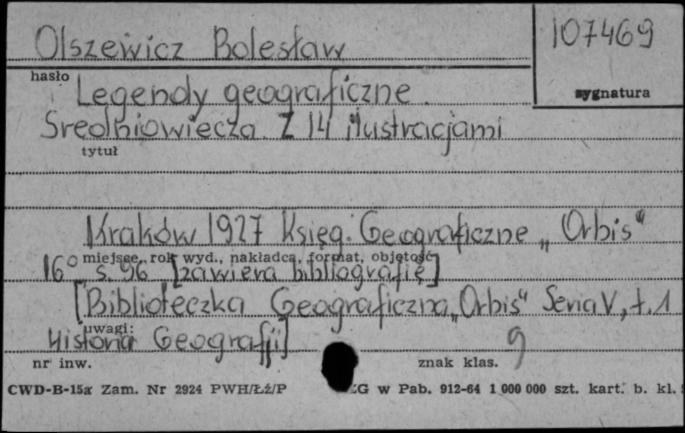 Olszewicz Bolesław
107469
hasło
sygnatura
Legendy geograficzne
Średniowiecza. Z 14 ilustracjami
tytuł
Kraków 1927 Księg. Geograficzne „Orbis"
miejsce, rok wyd., nakładca, format, objętość
16° s. 96 [zawiera bibliografię]
[Biblioteczka Geograficzna „Orbis" Seria V, t. 1
uwagi:
Historia Geografji]
9
nr inw.
znak klas.
CWD-B-15a Zam. Nr 2924 PWH/Łź/P
ZG w Pab. 912-64 1 000 000 szt. kart. b. kl.